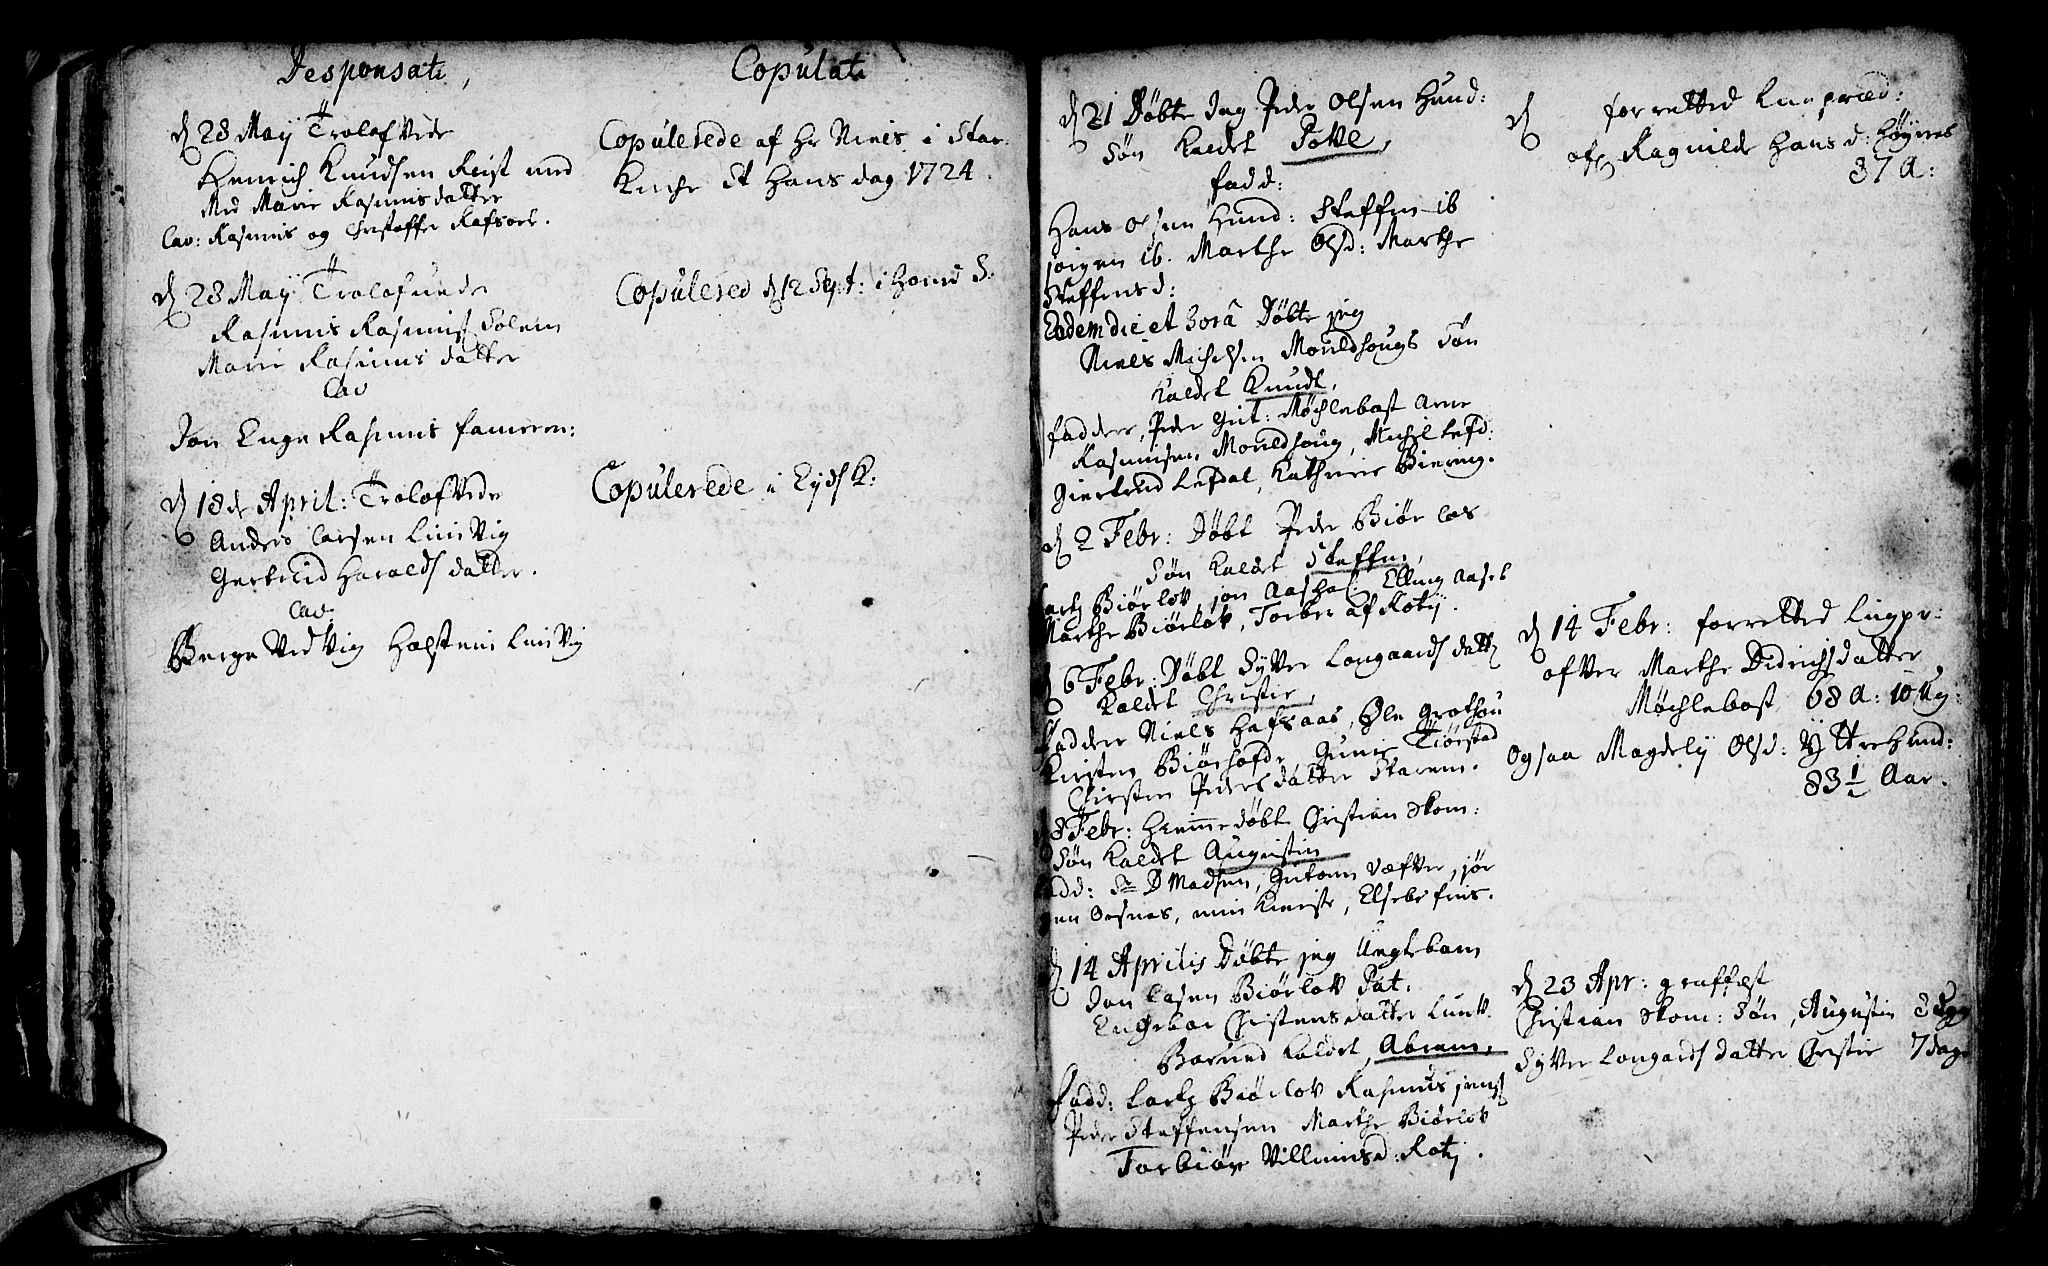 Desponsati,
d 28 May Trolofvede
Henrich Knudsen Reist med
Med Marie Rasmusdatter
Cav: Rasmus og Christoffer Rafsoel.
d 28 May Trolofvede
Rasmus Rasmuss Solem
Marie Rasmusdatter
Cav
Jon Enge Rasmus
d 18de April: Trolofvede
Anders Larsen LinVig
Gertrud Haralds datter.
Cav:
Berge Ved Vig Holsten LinVig
Copulati
Copulerede af Hr Niels i Star
Kirche St Hans dag 1724.
Copulered d 12 Sept: i Horn
Copulerede i Eyds K:
d 21 Døbte Jag Peder Olsen Hund:
Søn kaldet Povel,
fadd:
Hans Olsen Hund: Steffen ib
jørgen ib. Marthe Olsd: Marthe
Steffensd:
Eodem die et horâ Døbte jeg
Niels Michelsen Mouldhougs Søn
kaldet Knudt,
faddere, Peder Møchlebost Arne
Rasmusen, Mouldhoug, Michel Lefd:
Giertrud Lefdal, Kathrine Biering.
d 2 Febr: Døbt Peder Biør los
Søn kaldet Steffen,
Biørlov, jon Aashol Elling Aaseb
Marthe Biørlov, Torber af Rotij.
6 Febr: Døbt Sylver Longaards datt
kaldet Christie,
Faddere Niels Hafsaas, Ole Grothou
Kirsten Biørhofde Gunir Tiørstad
Christen Peders datter Skarem.
8 Febr: Hiemme døbt Christian Skom:
Søn kaldet Augustin
add: Sr D Madsen, Gutorm Væfver, jør
en Orsnes, min Kieriste, Elsebe fins.
d 14 Aprilis Døbte jeg Uegtebarn
Jon Lasen Biørlov Pat:
Engebor Christensdatter Lunv.
Barned kaldet, Abram,
Fadd: Larts Biørlov Rasmus jens
Peder Steffensen Marthe Biørlov
Torbiør Villumsd: Rotij.
d forretted Liigpræd:
oft Ragnilde Hansd: Høynes
37 A:
d 14 Febr: forretted Liigpr:
ofver Marthe Didrichsdatter
Møchlebost 68 A: 10 Ug:
Ogsaa Magdely Olsd: Yttrehund:
83 1/2 Aar.
d 23 Apr: graffæst
Christian Skom: Søn, Augustin 8
Sylver Longards datter Christie 7 dage